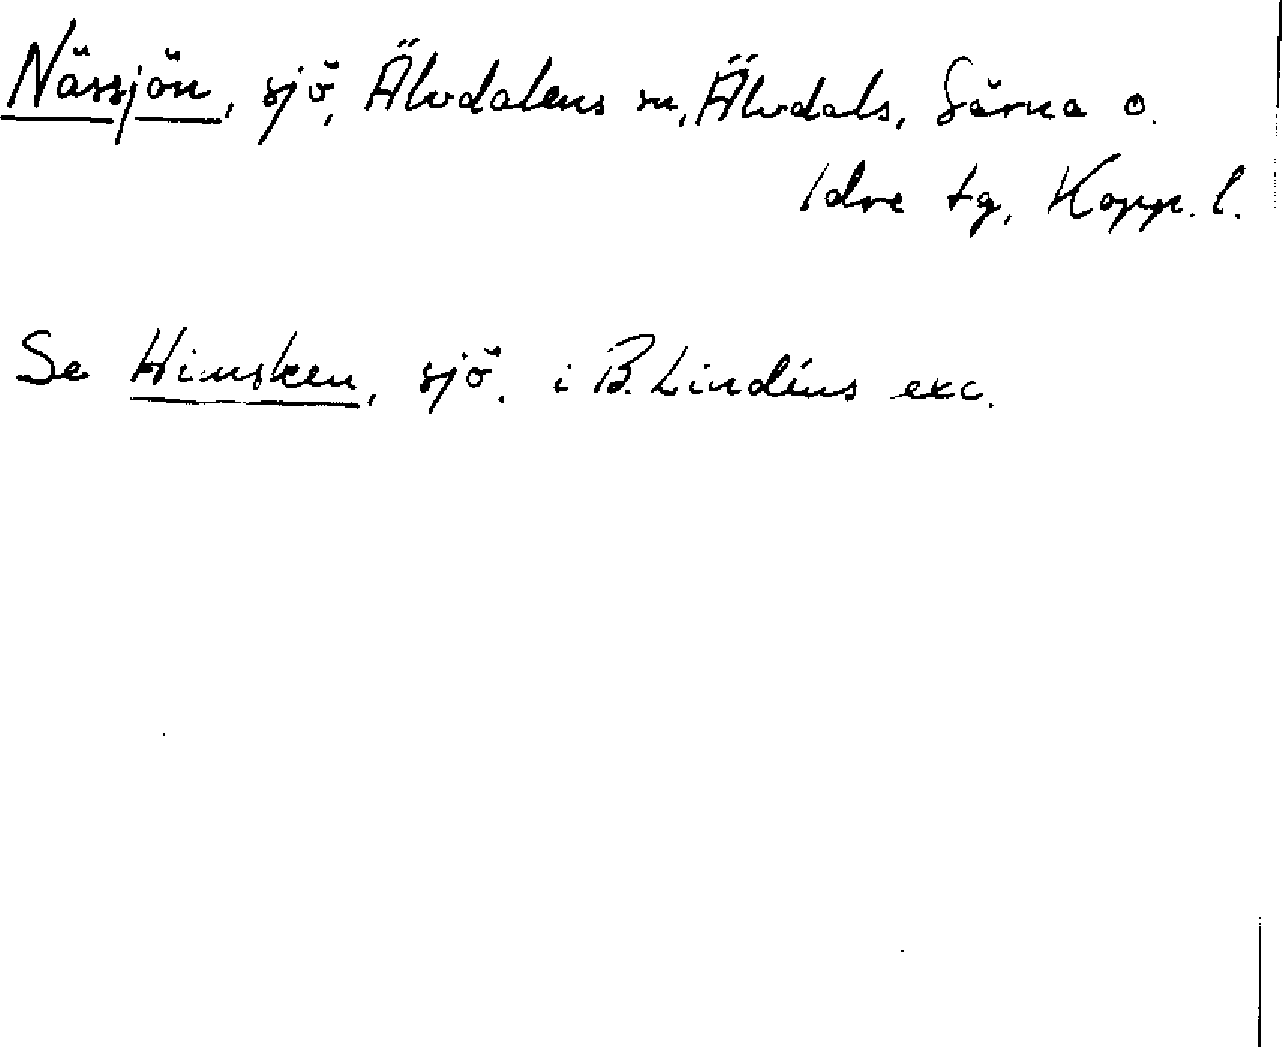 Nässjön, sjö, Älvdalens sn, Älvdals, Särna o.
Idre tg, Kopp. l.
Se Himsken, sjö. i B. Lindéns exc.